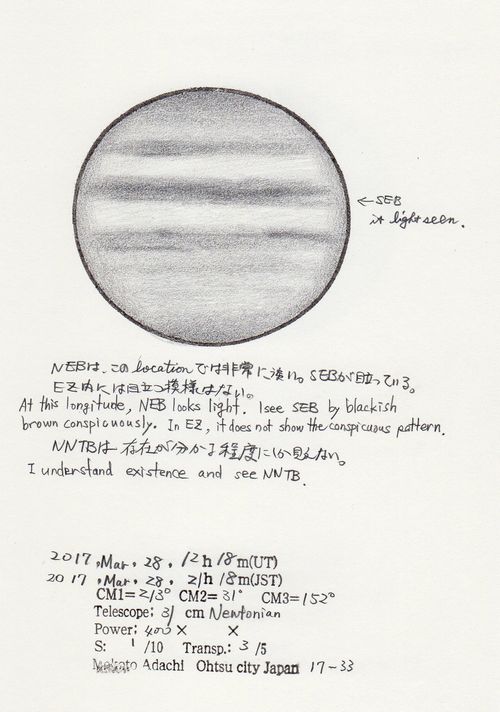 ←SEB
it light seen.
NEBは、この location では非常に淡い。SEBが目立っている。
EZ内には目立つ模様はない。
At this longitude, NEB looks light. I see SEB by blackish
brown conspicuously. In EZ, it does not show the conspicuous pattern.
NNTBは存在が分かる程度にしか見えない。
I understand existence and see NNTB.
2017, Mar. 28. 12h 18m(UT)
2017, Mar. 28. 21h 18m(JST)
CM1=213° CM2=31° CM3=152°
Telescope: 31 cm Newtonian
Power: 400× ×
S: 1 /10 Transp.: 3 /5
Makoto Adachi Ohtsu city Japan 17-33